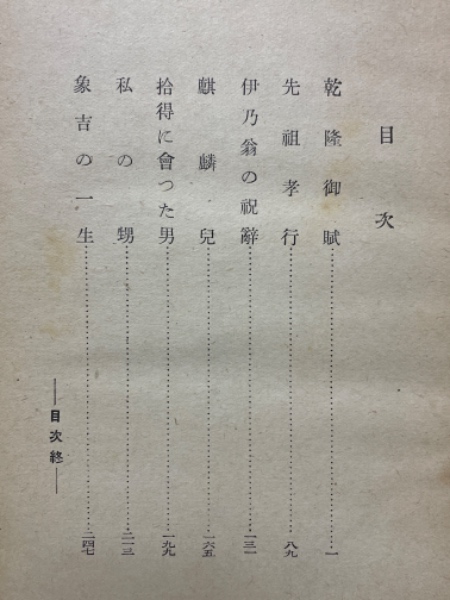 目次
乾隆御賦……一
先祖孝行……八九
伊乃翁の祝辭……一三一
麒麟兒……一六五
拾得に會つた男……一九九
私の甥……二一三
象吉の一生……二四七
――目次終――